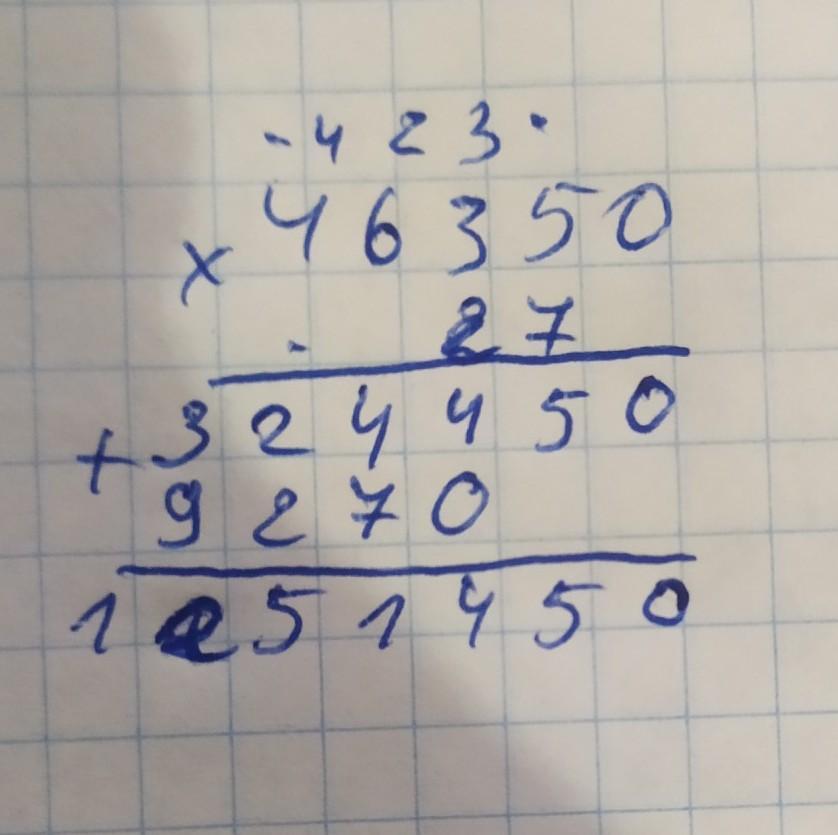 · 4 2 3 ·
× 46350
27
+ 324450
9270
1251450